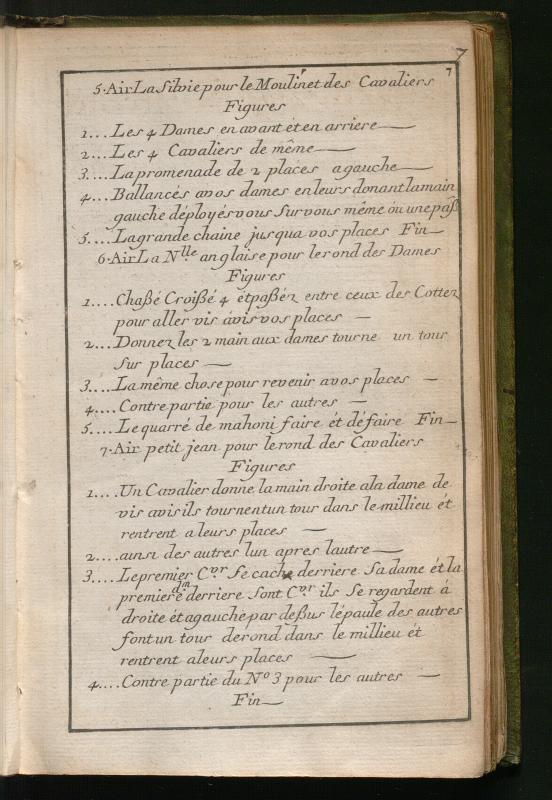 7
7
5. Air La Silvie pour le Moulinet des Cavaliers
Figures
1.... Les 4 Dames en avant et en arriere —
2.... Les 4 Cavaliers de même —
3.... La promenade de 2 places a gauche —
4... Ballancés avos dames en leurs donant la main
gauche déployés vous Sur vous même óu une paß
5.... La grande chaine jusqua vos places Fin —
6. Air La Nlle anglaise pour le rond des Dames
Figures
1.... Chaßé Croißé 4 ét paßéz entre ceux des Cottez
pour aller vis ávis vos places —
2... Donnez les 2 main aux dames tourne un tour
Sur places —
3.... La même chose pour revenir a vos places —
4.... Contre partie pour les autres —
5.... Le quarré de mahoni faire ét défaire Fin —
7. Air petit jean pour le rond des Cavaliers
Figures
1.... Un Cavalier donne la main droite ala dame de
vis avis ils tournent un tour dans le millieu ét
rentrent a leurs places —
2.... ainsi des autres lun apres lautre —
3.... Le premier Cvr Se cache derriere Sa dame ét la
premiere dm derriere Sont Cvr ils Se regardent á
droite ét agauche par deßus lépaule des autres
font un tous de rond dans le millieu ét
rentrent a leurs places —
4.... Contre partie du No 3 pour les autres —
Fin —